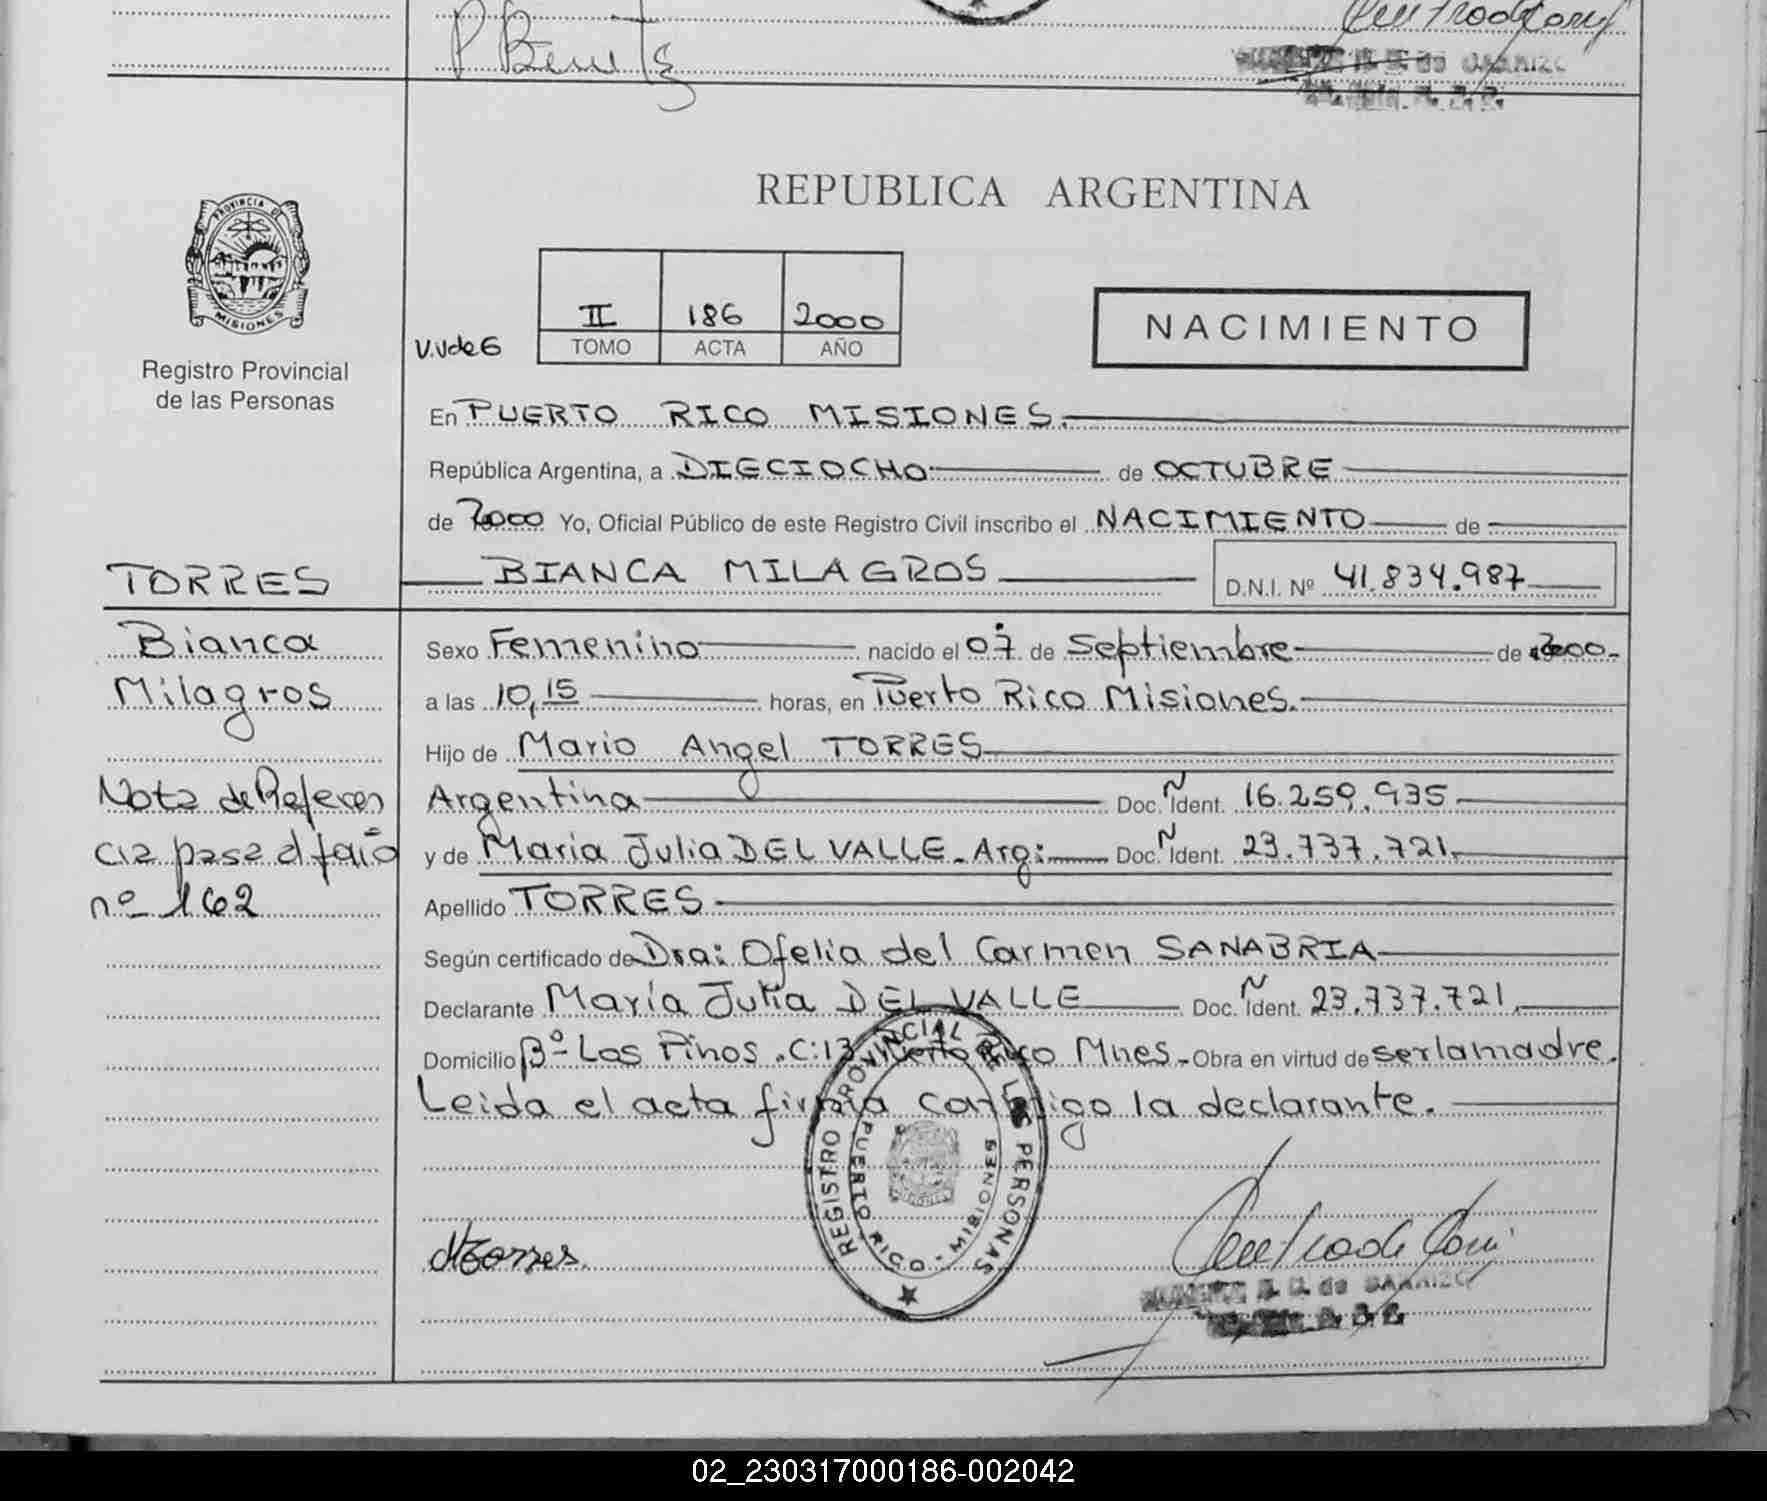 P Benitz
de CARRIZO
PROVINCIA DE
MISIONES
Registro Provincial
de las Personas
REPUBLICA ARGENTINA
II 186 2000
TOMO ACTA AÑO
V.Vde6
NACIMIENTO
En PUERTO RICO MISIONES.
República Argentina, a DIECIOCHO de OCTUBRE
de 2000 Yo, Oficial Público de este Registro Civil inscribo el NACIMIENTO de
BIANCA MILAGROS D.N.I. Nº 41.834.987
TORRES
Bianca
Milagros
Nota de Referen
cia pasa al folio
nº 162
Sexo Femenino nacido el 07 de Septiembre de 2000.
a las 10,15 horas, en Puerto Rico Misiones.
Hijo de Mario Angel TORRES
Argentina Doc. Ident. 16.259.935
y de María Julia DEL VALLE. Arg: Doc. Ident. 23.737.721.
Apellido TORRES
Según certificado de Dra: Ofelia del Carmen SANABRIA
Declarante María Julia DEL VALLE Doc. Ident. 23.737.721.
Domicilio Bº Los Pinos. C:13 Puerto Rico Mnes. Obra en virtud de ser la madre.
Leida el acta firma conmigo la declarante.
REGISTRO PROVINCIAL DE LAS PERSONAS
PUERTO RICO - MISIONES
de CARRIZO
02_230317000186-002042